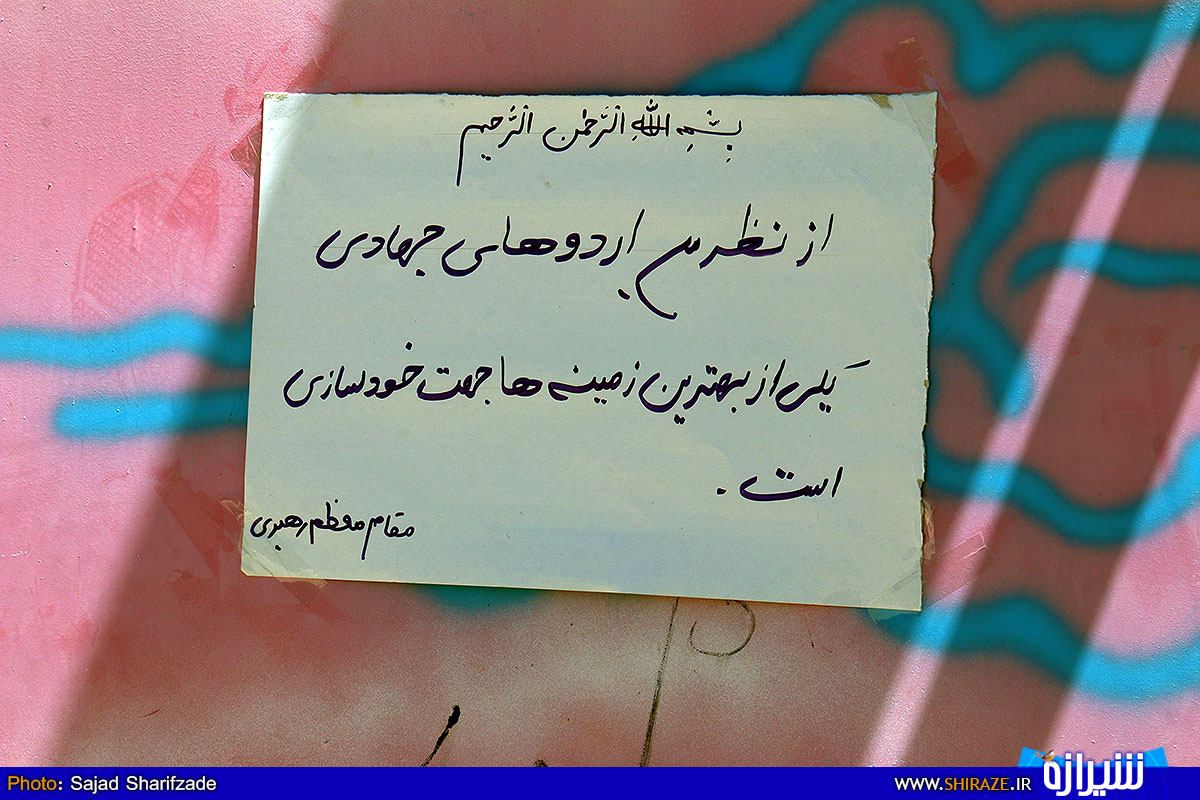 بِسْمِ اللهِ الرَّحْمنِ الرَّحیم
از نظر من اردوهای جهادی
یکی از بهترین زمینه ها جهت خودسازی
است .
مقام معظم رهبری
Photo: Sajad Sharifzade
WWW.SHIRAZE.IR شیرازه